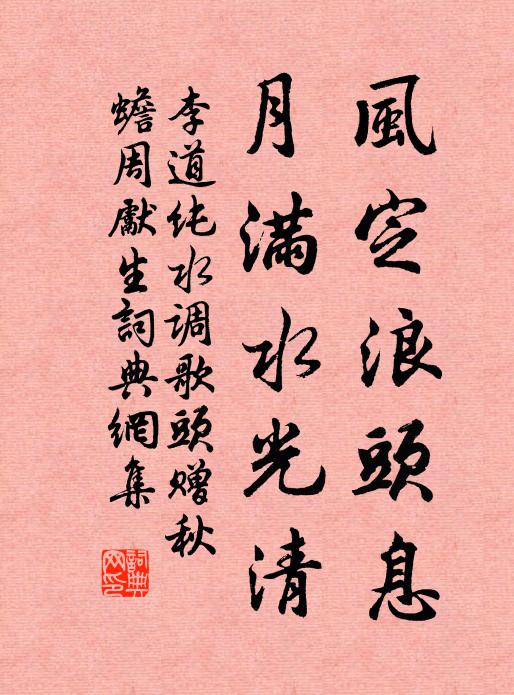 風定浪頭息
月滿水光清
李道纯水调歌頭赠秋
蟾周獻生詞典網集
詞典
网印